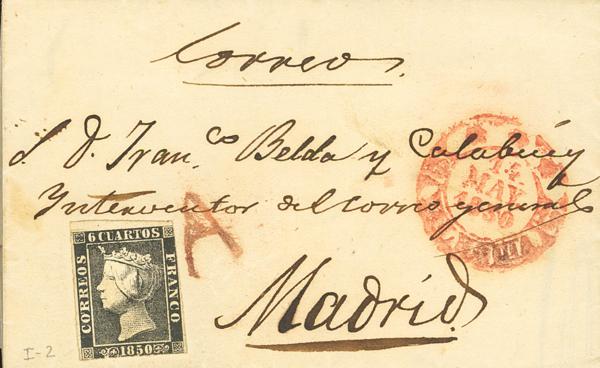 Correos.
S. D. Fran.co Belda y Calabuig
Interventor del correo general
A
Madrid.
6 CUARTOS
CORREOS
FRANCO
1850
MAY
I-2